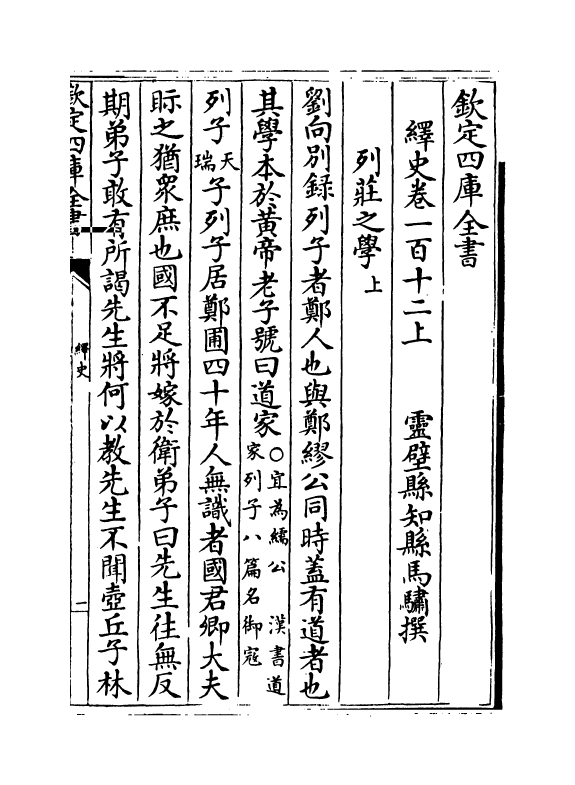 欽定四庫全書
繹史卷一百十二上 靈壁縣知縣馬驌撰
列莊之學上
劉向別錄列子者鄭人也與鄭繆公同時蓋有道者也
其學本於黃帝老子號曰道家○宜為繻公 漢書道家列子八篇名御寇
列子天瑞子列子居鄭圃四十年人無識者國君卿大夫
眎之猶衆庶也國不足將嫁於衛弟子曰先生往無反
期弟子敢有所謁先生將何以教先生不聞壺丘子林
欽定四庫全書
繹史